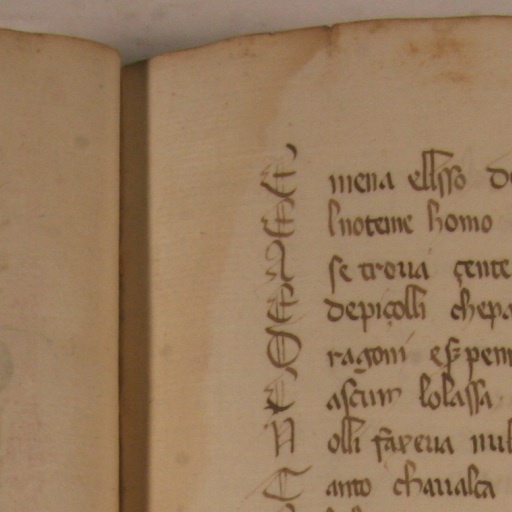 E mena ellsso de
E lnoteme homo
A se troua çente
E depiçolli chepa
D ragoni esspenn
C ascun lolassa
N olli fareua nul
T anto chaualca